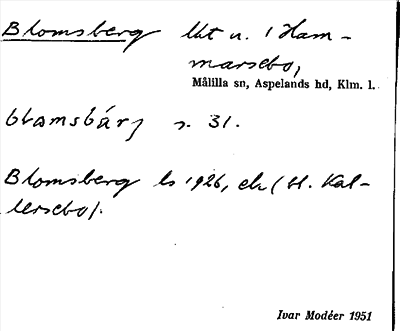 Blomsberg lht u. i Ham-
marsebo,
Målilla sn, Aspelands hd, Klm. l.
blomsbärj s. 31.
Blomsberg ls 1926, ek (bl. Kal-
lersebo).
Ivar Modéer 1951